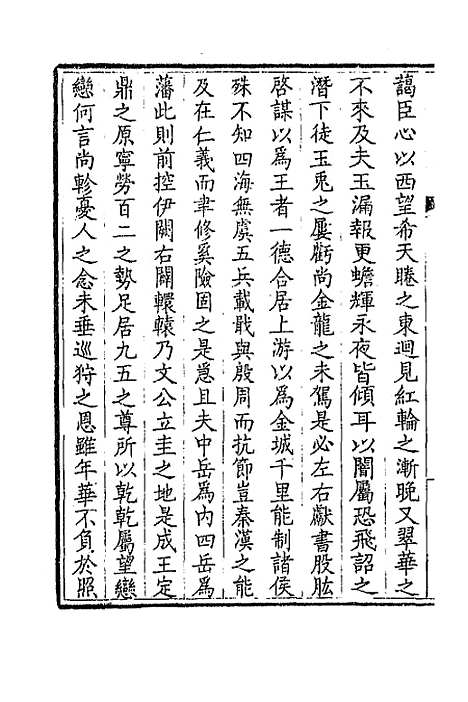 藹臣心以西望希天睠之東迴見紅輪之漸晚又翠華之
不來及夫玉漏報更蟾輝永夜皆傾耳以闇屬恐飛詔之
潛下徒玉兎之屢虧尚金龍之未駕是必左右獻書股肱
啓謀以爲王者一德合居上游以爲金城千里能制諸侯
殊不知四海無虞五兵載戢與殷周而抗節豈秦漢之能
及在仁義而聿修奚險固之是怠且夫中岳爲内四岳爲
藩此則前控伊闕右闢轘轅乃文公立圭之地是成王定
鼎之原寧勞百二之勢足居九五之尊所以乾乾屬望戀
戀何言尚軫憂人之念未垂巡狩之恩雖年華不負於照